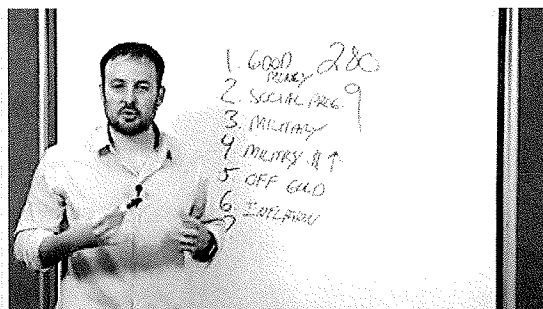 1. GOOD MONEY 280
2. SOCIAL PROG. 9
3. MILITARY
4 MILITRY $ ↑
5 OFF GOLD
6 INFLATION
7